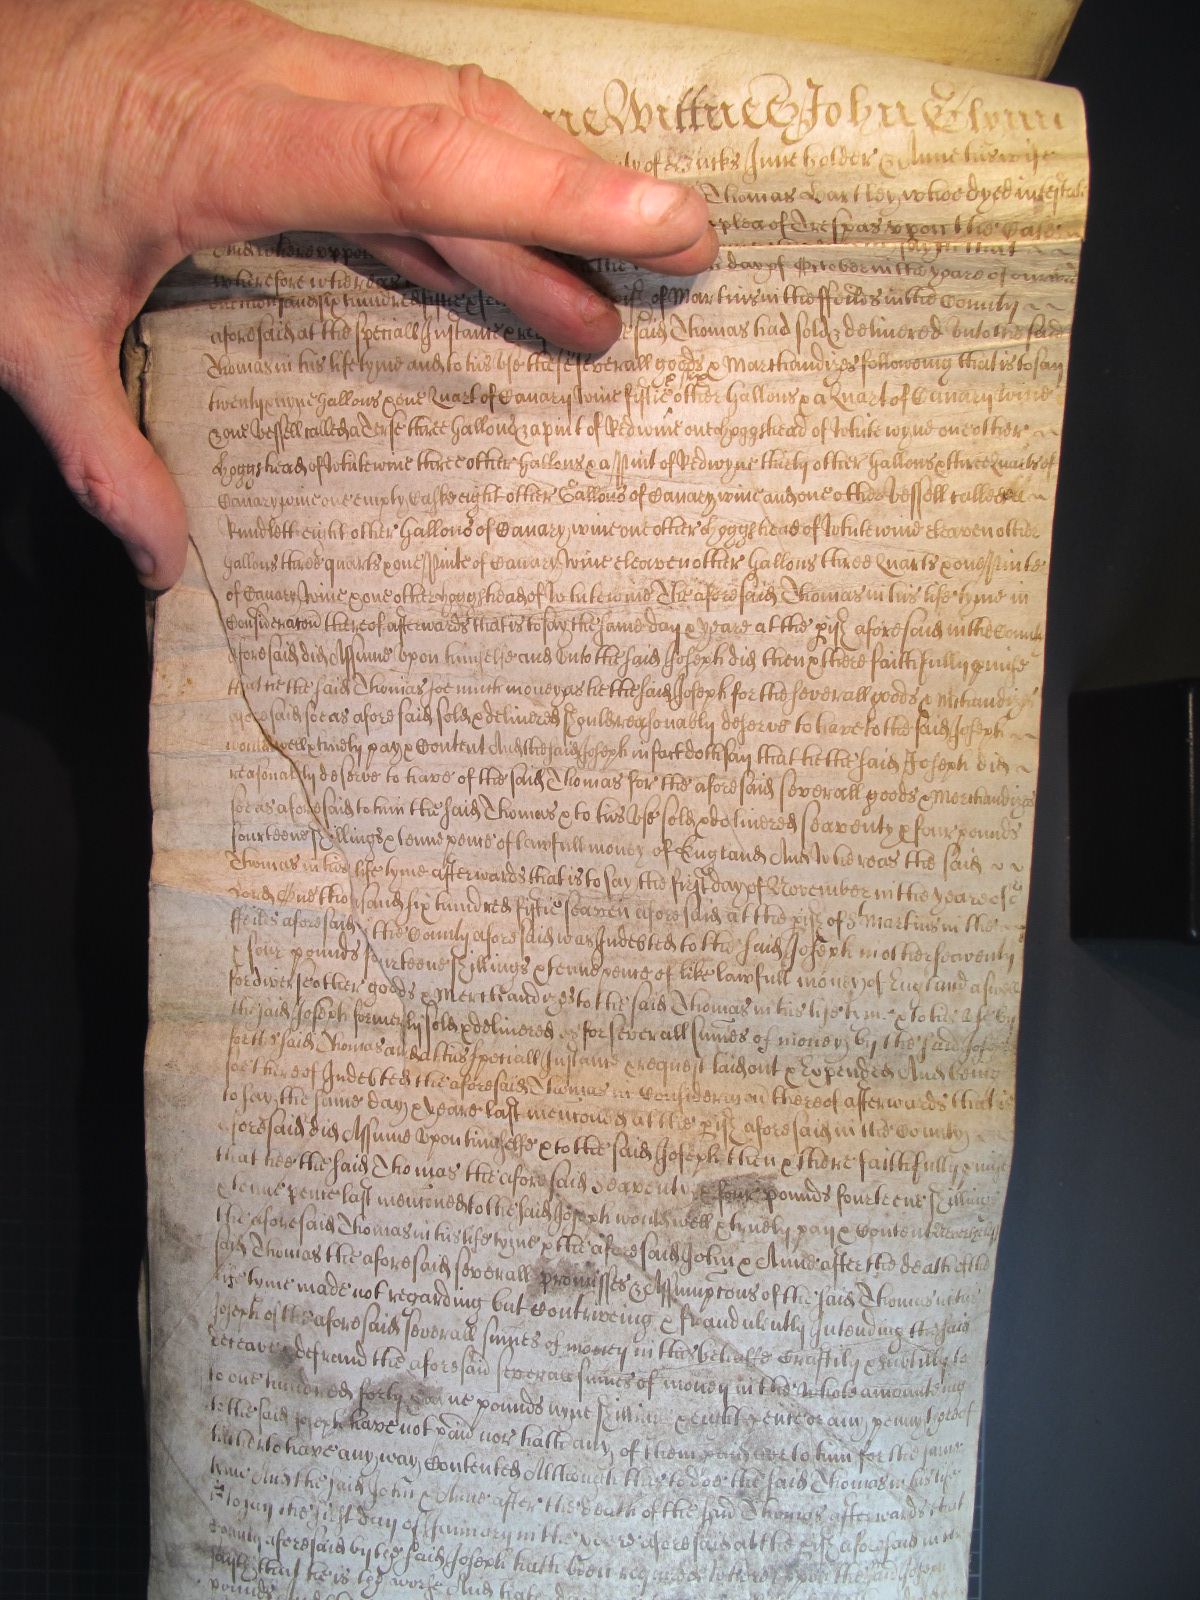 ne Wittnes John Glynn
of Bucks Inne holder & Anne his wife
Thomas Bartley whoe dyed intestate
plea of Trespas upon the Case
And where uppon
wherefore whereas day of October in the yeare of our
one thousand six hundred fiftie & seaven pish of Martins in the ffeilds in the County
aforesaid at the speciall Instance & request said Thomas had sold & delivered unto the said
Thomas in his life tyme and to his use these severall goods & Marchandizes following that is to say
twenty nyne Gallons & one Quart of Canary Wine fiftie other Gallons & a Quart of Canary wine
& one Vessell called a Terse three Gallons & a pint of Redwine one hoggshead of white wyne one other
hoggshead of white wine three other Gallons & a Pint of Redwyne thirty other Gallons & three Quarts of
Canary wine one empty Caske eight other Gallons of Canary wine and one other Vessell called a
Rundlett eight other Gallons of Canary wine one other hoggshead of white wine eleaven other
Gallons three quarts & one Pinte of Canary Wine eleaven other Gallons three Quarts & one Pinte
of Canary Wine & one other hoggshead of white wine The aforesaid Thomas in his life tyme in
Consideracon thereof afterwards that is to say the same day & yeare at the pish aforesaid in the County
aforesaid did Assume upon himselfe and unto the said Joseph did then & there faithfully pmise
that he the said Thomas soe much money as he the said Joseph for the severall goods & Mrchandizes
aforesaid soe as aforesaid sold & delivered should reasonably deserve to have to the said Joseph
would well & truely pay & Content And the said Joseph in fact doth say that he the said Joseph did
reasonably deserve to have of the said Thomas for the aforesaid severall goods & Merchandizes
soe as aforesaid to him the said Thomas & to his use sold & delivered seaventy & four pounds
fourteene shillings & tenne pence of lawfull money of England And Whereas the said
Thomas in his life tyme afterwards that is to say the first day of November in the yeare of our
Lord One thousand six hundred fiftie seaven aforesaid at the pish of St Martins in the
ffeilds aforesaid in the County aforesaid was Indebted to the said Joseph in other seaventy
& four pounds fourteene shillings & tenne pence of like lawfull money of England aswell
for diverse other goods & Merchandizes to the said Thomas in his life tyme & to his use by
the said Joseph formerly sold & delivered as for severall sumes of money by the said Joseph
for the said Thomas and at his speciall Instance & request laid out & Expended And being
soe thereof Indebted the aforesaid Thomas in Consideracon thereof afterwards that is
to say the same day & yeare last mentioned at the pish aforesaid in the County
aforesaid did Assume upon himselfe & to the said Joseph then & there faithfully pmise
that hee the said Thomas the aforesaid Seaventy & four pounds fourteene shillings
& tenne pence last mentioned to the said Joseph would well & truely pay & Content Neverthelesse
the aforesaid Thomas in his life tyme & the aforesaid John & Anne after the death of the
said Thomas the aforesaid severall promisses & Assumptions of the said Thomas in his
life tyme made not regarding but Contriveing & fraudulently intending the said
Joseph of the aforesaid severall sumes of money in this behalfe Craftily & subtilly to
deceave & defraud the aforesaid severall sumes of money in the whole amounteing
to one hundred forty nyne pounds nyne shillings & eight pence or any penny thereof
to the said Joseph have not paid nor hath any of them paid nor to him for the same
hitherto have any way Contented Although this to doe the said Thomas in his life
tyme And the said John & Anne after the death of the said Thomas afterwards that
is to say the first day of January in the yeare aforesaid at the pish aforesaid in the
County aforesaid by the said Joseph hath been required
saith that he is the worse And hath
pounds And